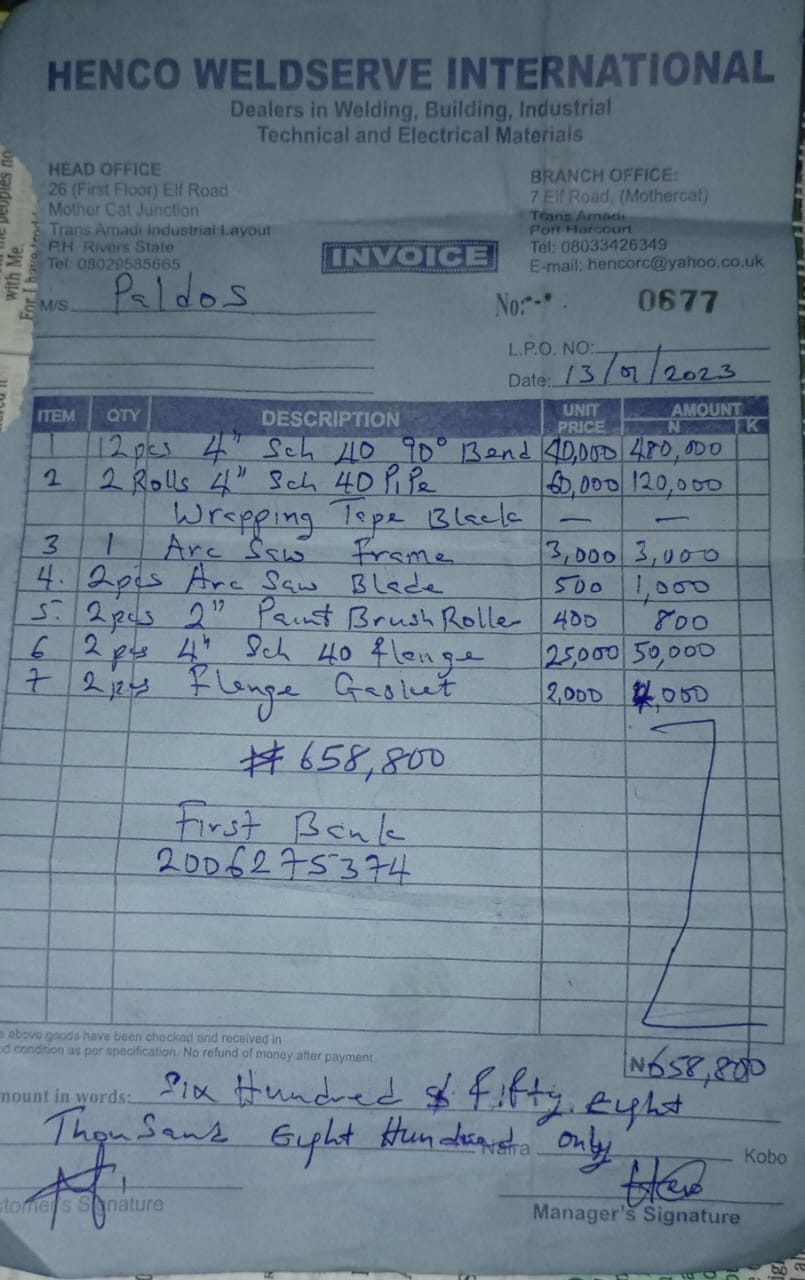 HENCO WELDSERVE INTERNATIONAL
Dealers in Welding, Building, Industrial
Technical and Electrical Materials
HEAD OFFICE
26 (First Floor) Elf Road
Mother Cat Junction
Trans Amadi Industrial Layout
P.H. Rivers State
Tel: 08029585665
BRANCH OFFICE:
7 Elf Road, (Mothercat)
Trans Amadi
Port Harcourt
Tel: 08033426349
E-mail: hencorc@yahoo.co.uk
INVOICE
M/S Paldos
No: 0677
L.P.O. NO:
Date: 13/01/2023
ITEM QTY DESCRIPTION UNIT PRICE AMOUNT N K
1 12pcs 4" Sch 40 90° Bend 40,000 480,000
2 2 Rolls 4" Sch 40 Pipe 60,000 120,000
Wrapping Tape Black — —
3 1 Arc Saw Frame 3,000 3,000
4. 2pcs Arc Saw Blade 500 1,000
5. 2pcs 2" Paint Brush Roller 400 800
6 2 pcs 4" Sch 40 flenge 25,000 50,000
7 2 pcs Flenge Gasket 2,000 4,000
₦ 658,800
First Bank
2006275374
above goods have been checked and received in
condition as per specification. No refund of money after payment
N658,800
mount in words: Six Hundred & Fifty Eight
Thousand Eight Hundred Naira only Kobo
Signature
Manager's Signature
with Me.